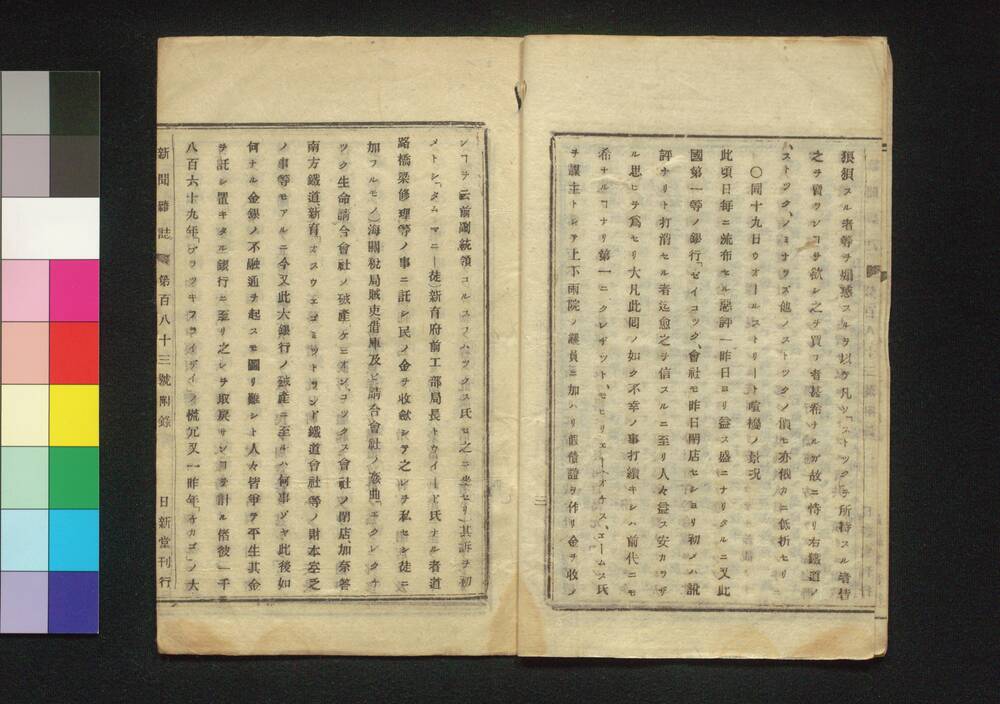 狼狽スル者等ヲ媚惑スルヲ以テ凡ソ「ストック」ヲ所持スル者皆
之ヲ賣ランコヲ欲シ之ヲ買フ者甚希ナルガ故ニ特リ右鐵道ノ
「ストック」ノミナラズ他ノ「ストック」ノ價モ亦俄カニ低折セリ
〇同十九日ウオールストリート喧擾ノ景况
此頃日毎ニ流布セル惡評一昨日ヨリ益ス盛ニナリタルニ又此
國第一等ノ銀行「ゼイコック」會社モ昨日閉店セシヨリ初メハ訛
評ナリト打消セル者迄愈之ヲ信スルニ至リ人々益ス安カラザ
ル思ヒヲ爲セリ大凡此囘ノ如ク不幸ノ事打續キシハ前代ニモ
希ナルコナリ第一ニ
ヲ謀主トシテ上下兩院ノ議員ニ加ハリ假證ヲ作リ金ヲ收メ
三
シコヲ云前副統領コルスフハックス氏モ之ニ坐セリ)其訴ヲ初
メトシ「タムマニー」(徒)新育府前工部局長トウイード氏ナル者道
路橋梁修理等ノ事ニ託シ民ノ金ヲ收歛シテ之レヲ私セシ徒ニ
加フルモノ)海關稅局賊吏借庫及ヒ請合會社ノ
ツク生命請合會社ノ破產ケニオンコックス會社ノ閉店加奈答
南方鐵道新育「オスウエゴミットランド」鐵道會社等ノ財本空乏
ノ事等モアルニ今又此大銀行ノ破產ニ至ルハ何事ゾヤ此後如
何ナル金銀ノ不融通ヲ起スモ圖リ難シト人々皆爭テ平生其金
ヲ託シ置キタル銀行ニ至リ之レヲ取戾サンコヲ計ル偖彼一千
八百六十九年「ブラツキフライデイ」ノ慌冗又一昨年「チカゴ」ノ大
新聞雜誌 第百八十三號附錄 日新堂刊行